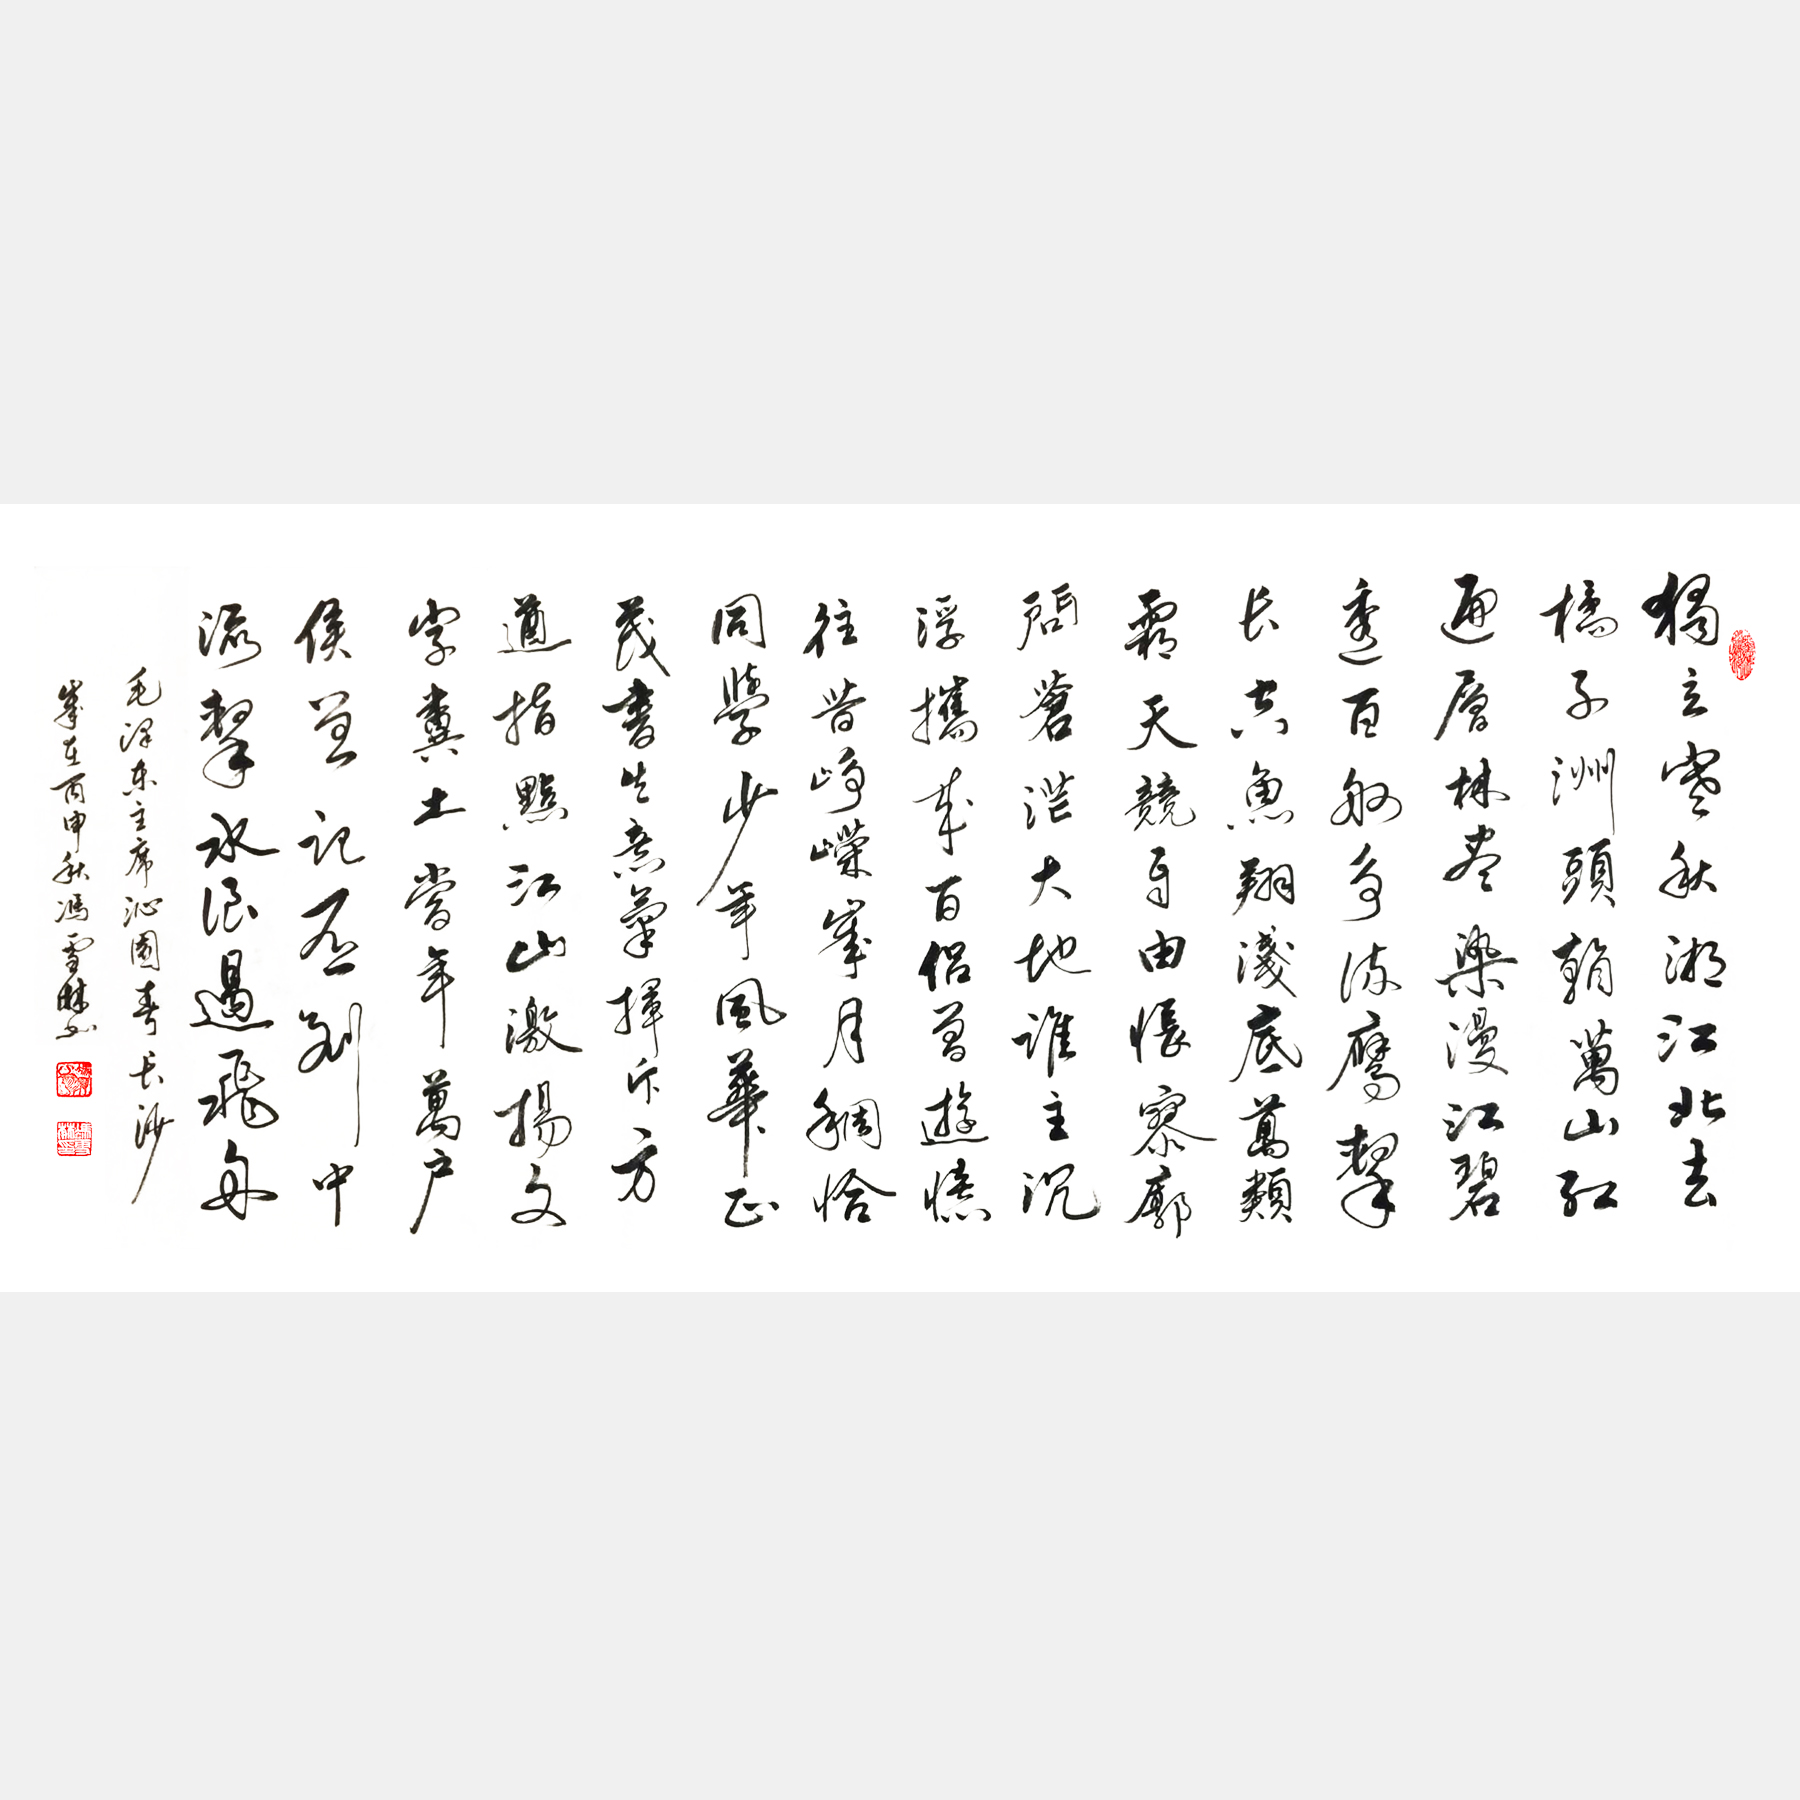 獨立寒秋湘江北去
橘子洲頭看萬山紅
遍層林尽染漫江碧
透百舸争流鷹擊
长空魚翔淺底萬類
霜天競自由悵寥廓
問蒼茫大地誰主沉
浮攜来百侣曾遊憶
往昔崢嶸歲月稠恰
同學少年風華正
茂書生意氣揮斥方
遒指點江山激揚文
字糞土當年萬户
侯曾記否到中
流擊水浪遏飛舟
毛泽东主席沁園春长沙
歲在丙申秋馮雪林书